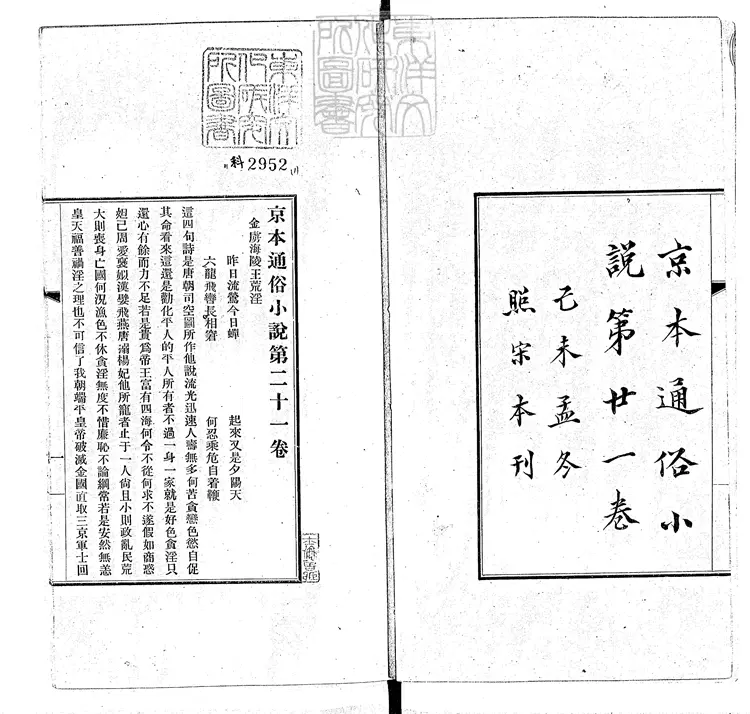 京本通俗小
說第廿一卷
己未孟冬
照宋本刊
東洋文
化研究
所圖書
科2952
京本通俗小說第二十一卷
金虜海陵王荒淫
昨日流鶯今日蟬 起來又是夕陽天
六龍飛轡長相窘 何忍乘危自着鞭
這四句詩是唐朝司空圖所作他說流光迅速人壽無多何苦貪戀色慾自促
其命看來這還是勸化平人的平人所有者不過一身一家就是好色貪淫只
還心有餘而力不足若是貴爲帝王富有四海何令不從何求不遂假如商惑
妲己周愛褒姒漢嬖飛燕唐溺楊妃他所寵者止于一人尙且小則政亂民荒
大則喪身亡國何況漁色不休貪淫無度不惜廉恥不論綱常若是安然無恙
皇天福善禍淫之理也不可信了我朝端平皇帝破滅金國直取三京軍士回
一